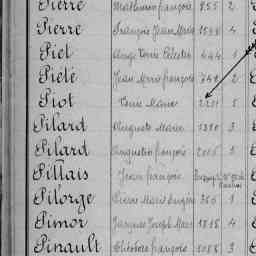 Pierre Mathurin françois 955 2
Pierre François Jean Marie 4
Piel Ange Louis Célestin 444 1
Piété Jean Marie françois 2
Piot Louis Marie 2221 5
Pilard Auguste Marie 1390 3
Pilard Augustin françois 2005 5
Pittais Jean françois
Pilorge Pierre Marie Eugène 365 1
Pimor Jacques Joseph Marie 1818 4
Pinault Théodore françois 1088 3